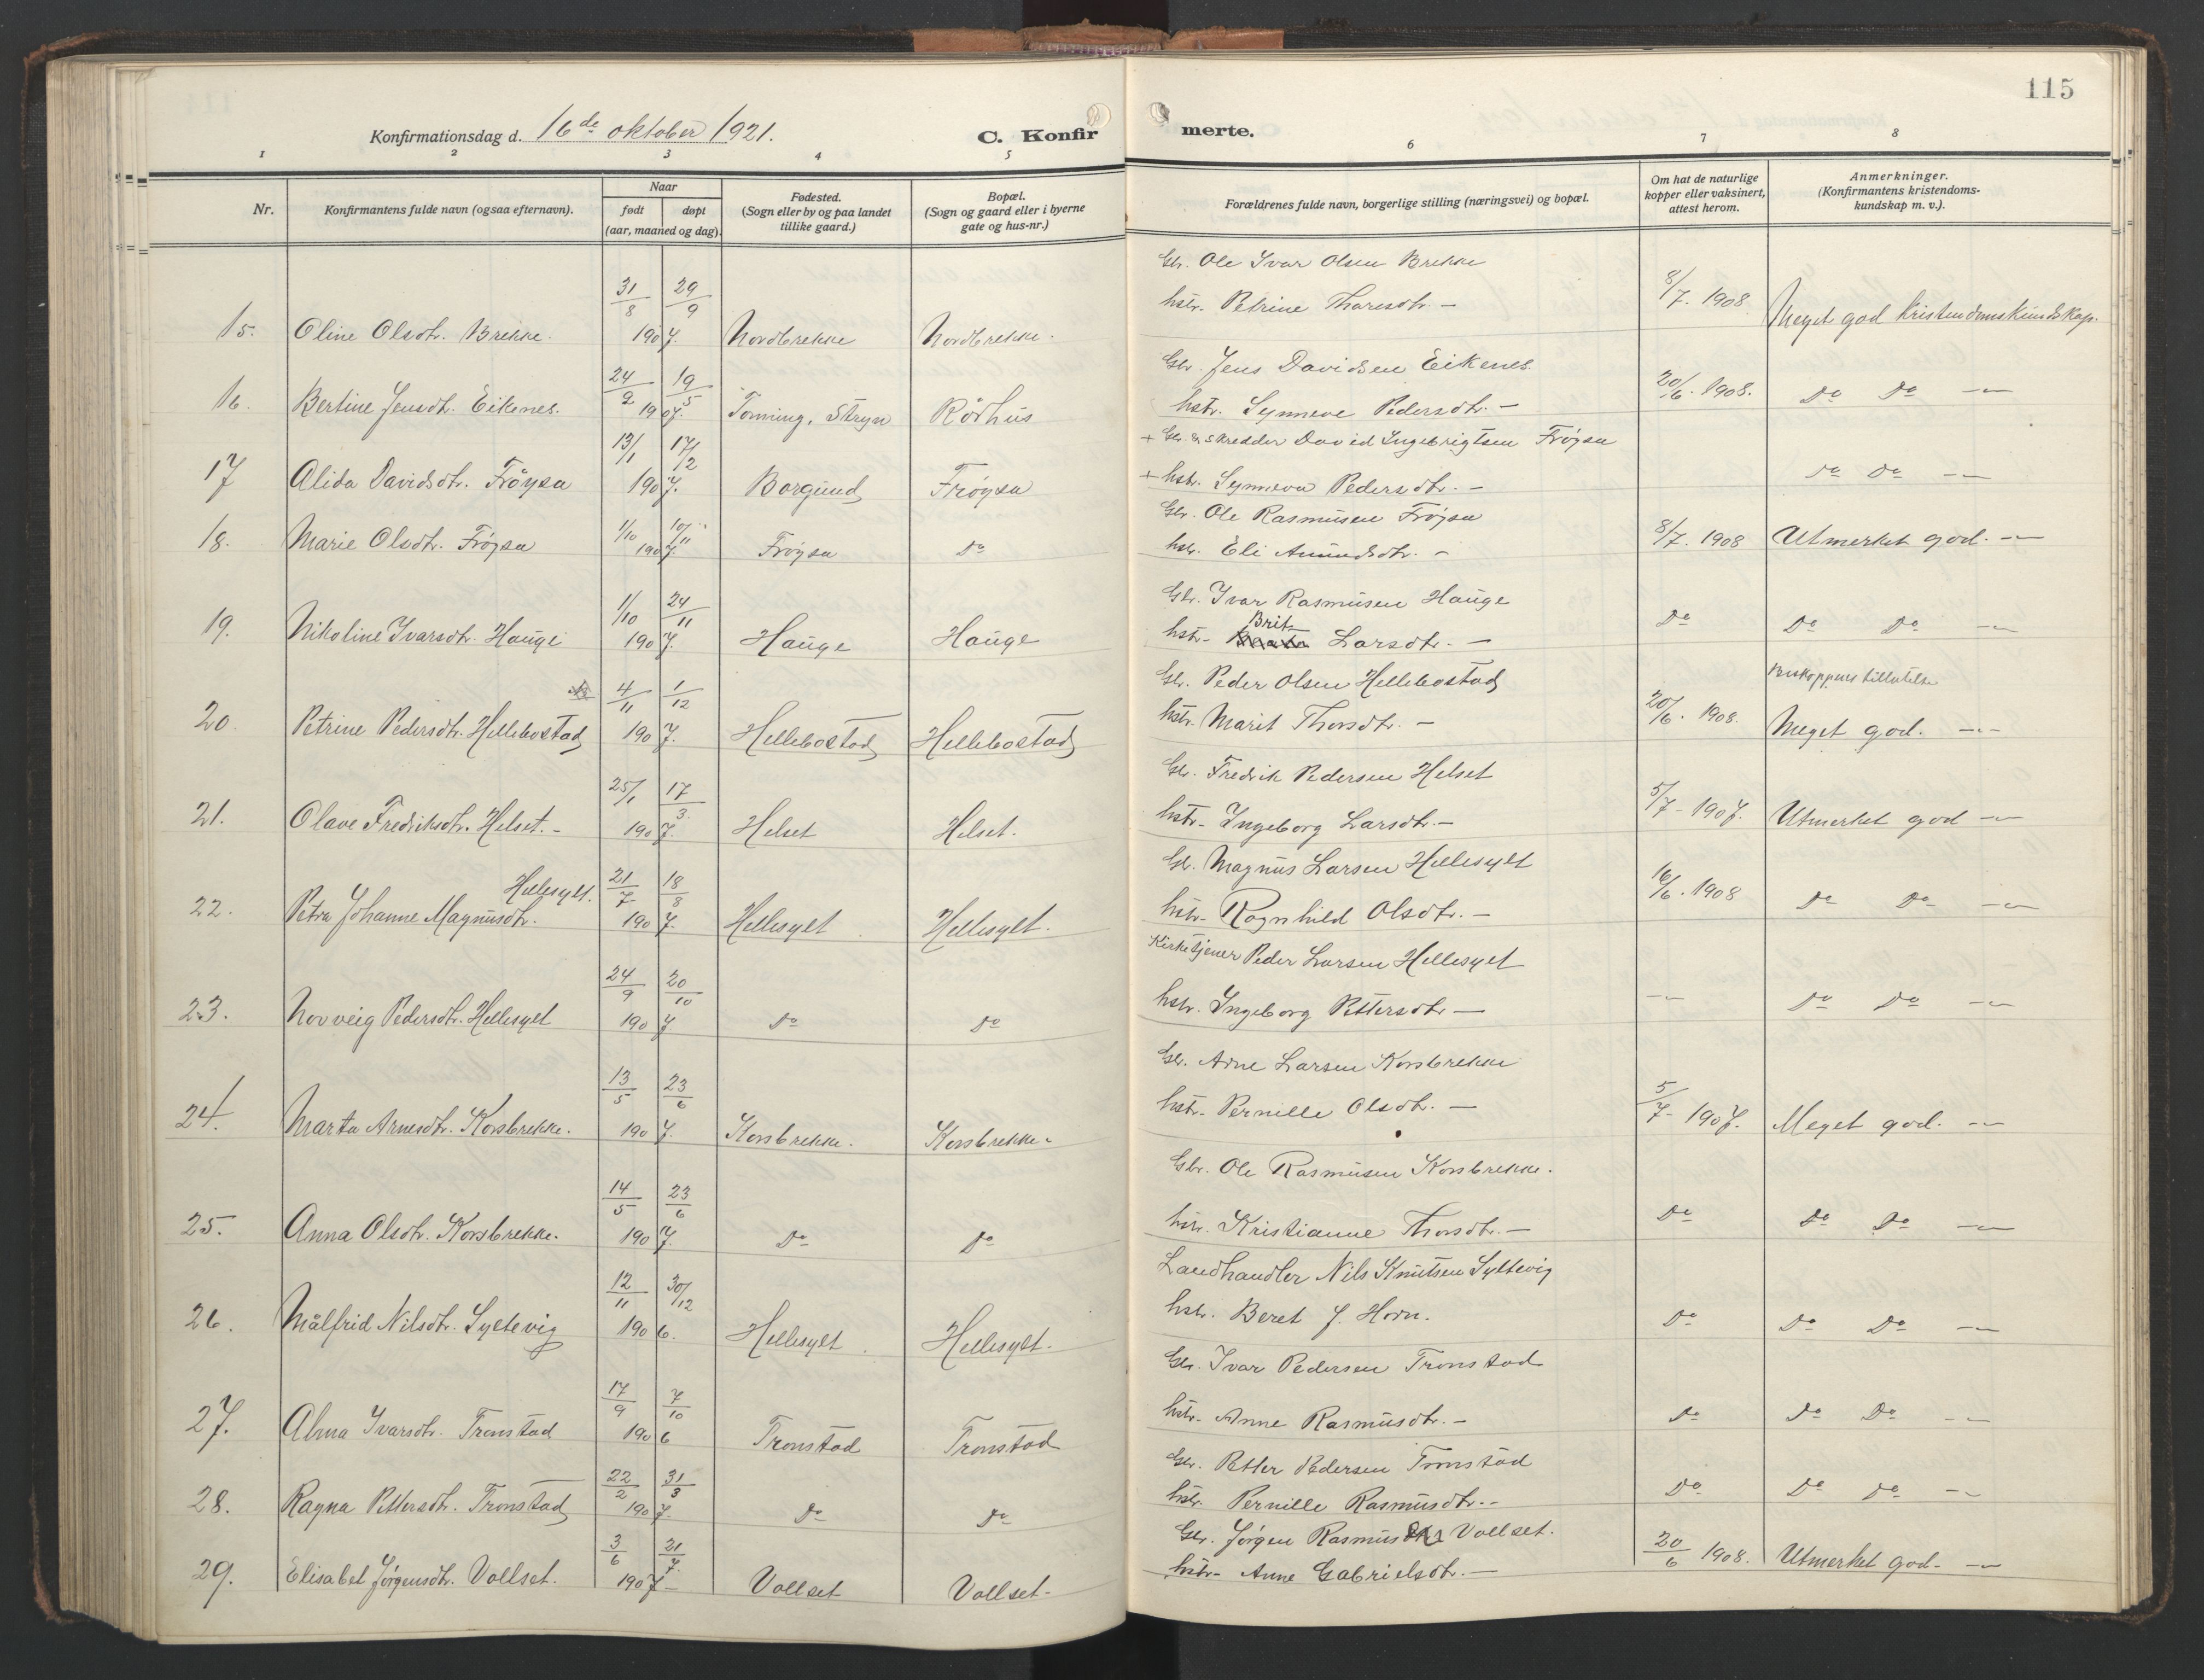 115
Konfirmationsdag d. 16de oktober 1921. C. Konfir merte.
1 2 3 4 5 6 7 8
Nr. Konfirmantens fulde navn (ogsaa efternavn). Naar født døpt (aar, maaned og dag). Fødested. (Sogn eller by og paa landet tillike gaard.) Bopæl. (Sogn og gaard eller i byerne gate og hus-nr.) Forældrenes fulde navn, borgerlige stilling (næringsvei) og bopæl. Om hat de naturlige kopper eller vaksinert, attest herom. Anmerkninger. (Konfirmantens kristendoms-kundskap m. v.).
Gbr. Ole Ivar Olsen Brekke
15. Oline Olsdtr. Brekke. 31/8 29/9 1907. Nordbrekke Nordbrekke. hstr. Petrine Thoresdtr. — 8/7. 1908 Meget god Kristendomskundskap.
Gbr. Jens Davidsen Eikenes.
16. Bertine Jensdtr. Eikenes. 24/2 19/5 1907. Tonning, Stryn Rödhus hstr. Synneve Pedersdtr. — 20/6. 1908. Do Do —"—
+ Gbr. & skredder David Ingebrigtsen Frøysa
17 Alida Davidsdtr. Frøysa 13/1 17/2 1907. Borgund Frøysa + hstr. Synneva Pedersdtr. — Do Do —"—
Gbr. Ole Rasmusen Frøysa
18. Marie Olsdtr. Frøysa 1/10 10/11 1907. Frøysa Do hstr. Eli Amundsdtr. — 8/7. 1908 Utmerket god. —"—
Gbr. Ivar Rasmusen Hauge
19. Nikoline Ivarsdtr. Hauge 1/10 24/11 1907. Hauge Hauge hstr. Brit Larsdtr. — Do Do Do —"—
Gbr. Peder Olsen Hellebostad Biskoppens tillatelse
20. Petrine Pedersdtr. Hellebostad 4/11 1/12 1907. Hellebostad Hellebostad hstr. Marit Thorsdtr. — 20/6. 1908. Meget god. —"—
Gbr. Fredrik Pedersen Helset
21. Olave Fredriksdtr. Helset. — 25/1 17/3. 1907. Helset Helset. hstr. Ingeborg Larsdtr. — 5/7 - 1907. Utmerket god —"—
Gbr. Magnus Larsen Hellesylt
22. Petra Johanne Magnusdtr. Hellesylt. 21/7 18/8 1907. Hellesylt Hellesylt. hstr. Ragnhild Olsdtr. — 16/6. 1908 Do Do —"—
Kirketjener Peder Larsen Hellesylt
23. Norveig Pedersdtr. Hellesylt 24/9 20/10 1907 Do Do hstr. Ingeborg Pettersdtr — —"— Do Do —"—
Gbr. Arne Larsen Korsbrekke
24. Marta Arnesdtr. Korsbrekke. 13/5 23/6 1907. Korsbrekke. Korsbrekke. hstr. Pernille Olsdtr. — 5/7 - 1907. Meget god. —"—
Gbr. Ole Rasmusen Korsbrekke.
25. Anna Olsdtr. Korsbrekke. 14/5 23/6 1907. Do Do hstr. Kristianne Thorsdtr. — Do Do Do —"—
Landhandler Nils Knutsen Syltevig
26. Målfrid Nilsdtr. Syltevig 12/11 30/12 1906. Hellesylt Hellesylt. hstr. Beret J. Horn. Do Do Do —"—
Gbr. Ivar Pedersen Tronstad
27. Alma Ivarsdtr. Tronstad 17/9 7/10 1906 Tronstad Tronstad hstr. Anne Rasmusdtr. — Do Do Do —"—
Gbr. Petter Pedersen Tronstad
28. Ragna Pettersdtr. Tronstad 22/2 31/3 1907. Do Do hstr. Pernille Rasmusdtr. — Do Do Do —"—
Gbr. Jørgen Rasmussen Vollset.
29. Elisabet Jørgensdtr. Vollset. 3/6 21/7. 1907 Vollset Vollset. hstr. Anne Gabrielsdtr. — 20/6 1908. Utmerket god. —"—